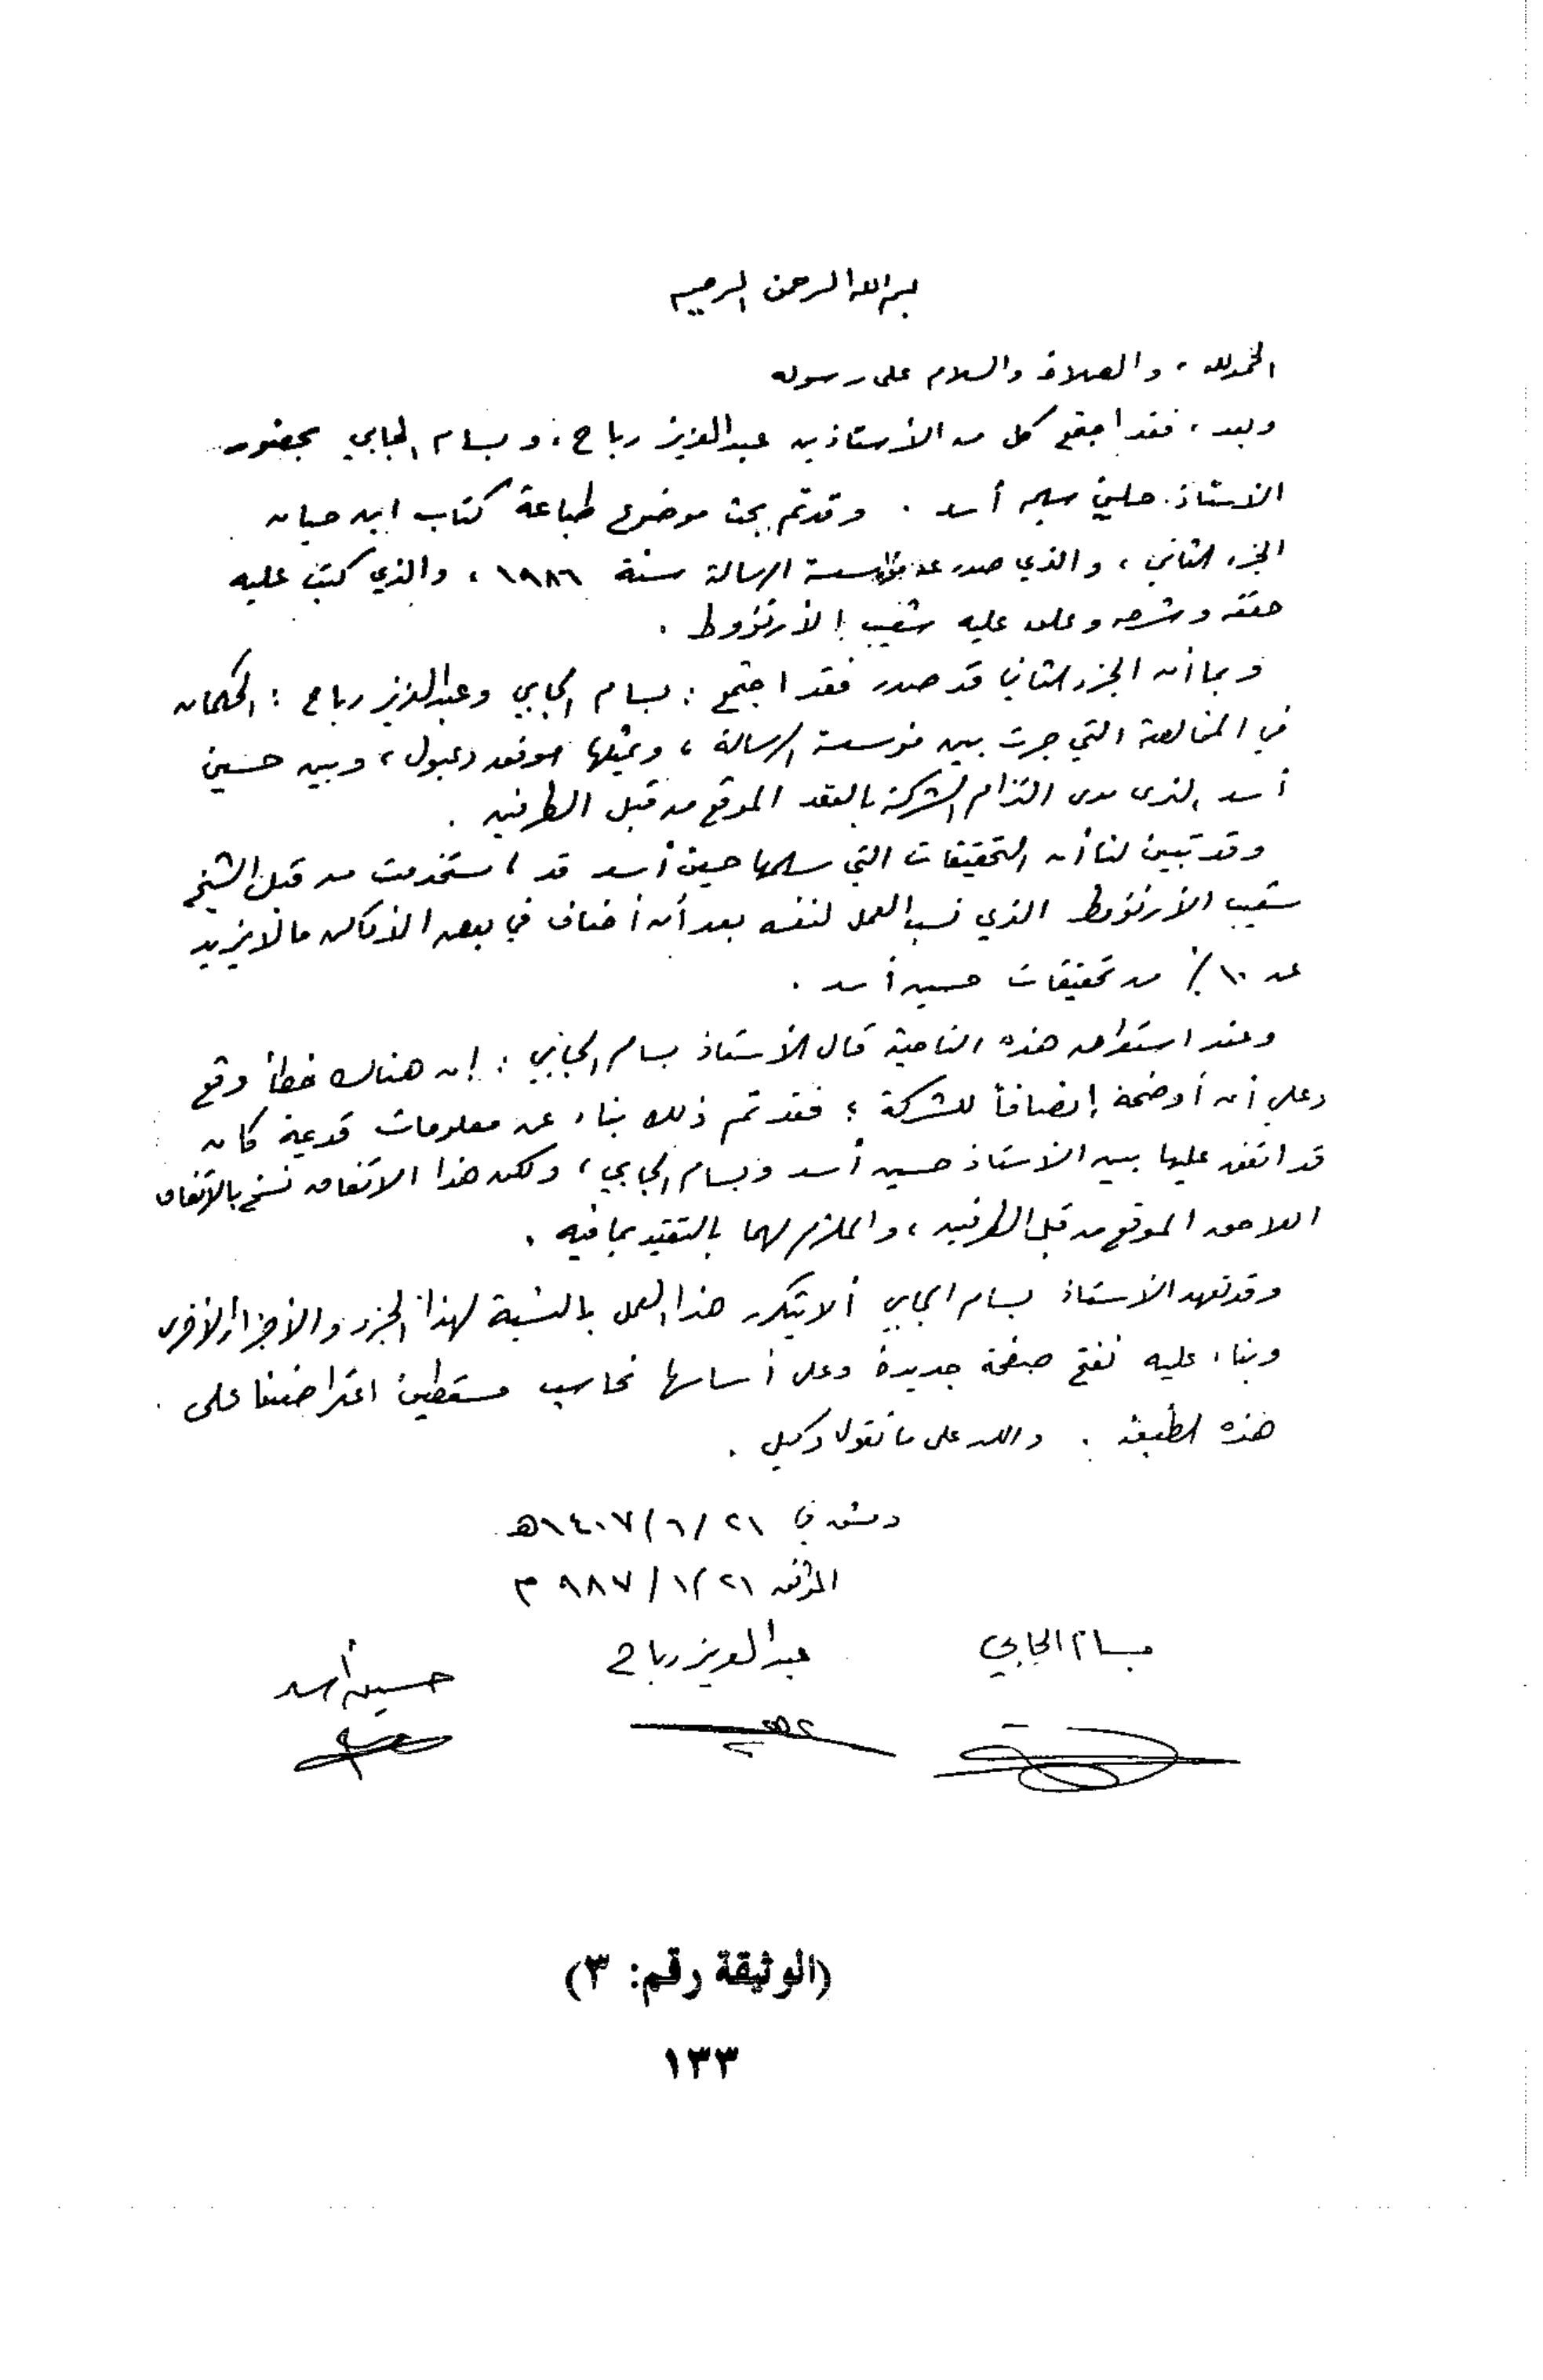 بسم الله الرحمن الرحيم
الحمد لله ، والصلاة والسلام على رسوله
وبعد ، فقد اجتمع كل من الأستاذين عبدالعزيز رباح ، وبسام الجابي بحضور
الاستاذ حسين سليم أسد . وقد تم بحث موضوع طباعة كتاب ابن حبان
الجزء الثاني ، والذي صدر عن مؤسسة الرسالة سنة ١٩٨٦ ، والذي كتب عليه
حققه وشرحه وعلق عليه شعيب الأرنؤوط .
وبما أن الجزء الثاني قد صدر فقد اجتمع : بسام الجابي وعبدالعزيز رباح : الحكمان
في المخالفة التي جرت بين مؤسسة الرسالة ، ويمثلها موفق دعبول ، وبين حسين
أسد لنرى مدى التزام الشركة بالعقد الموقع من قبل الطرفين .
وقد تبين لنا أن التحقيقات التي سلمها حسين أسد قد استخدمت من قبل الشيخ
شعيب الأرنؤوط الذي نسب العمل لنفسه بعد أن أضاف في بعض الأماكن ما لا يزيد
عن ١٠٪ من تحقيقات حسين أسد .
وعند استعراض هذه الناحية قال الأستاذ بسام الجابي : إن هناك خطأ وقع
وعلي أن أوضحه إنصافاً للشركة ؛ فقد تم ذلك بناء عن معلومات قديمة كان
قد اتفق عليها بين الاستاذ حسين أسد وبسام الجابي ، ولكن هذا الاتفاق نسخ بالاتفاق
اللاحق الموقع من قبل الطرفين ، والملزم لهما بالتقيد بما فيه .
وقد تعهد الأستاذ بسام الجابي ألا يتكرر هذا العمل بالنسبة لهذا الجزء والأجزاء الأخرى
وبناء عليه نفتح صفحة جديدة وعلى أساسها نحاسب مسقطين اعتراضنا على
هذه الطبعة . والله على ما نقول وكيل .
دمشق في ٢١ / ٦ / ١٤٠٧ هـ
الموافق ٢١ / ١ / ٩٨٧ م
بسام الجابي عبدالعزيز رباح حسين أسد
(الوثيقة رقم: ٣)
١٣٣